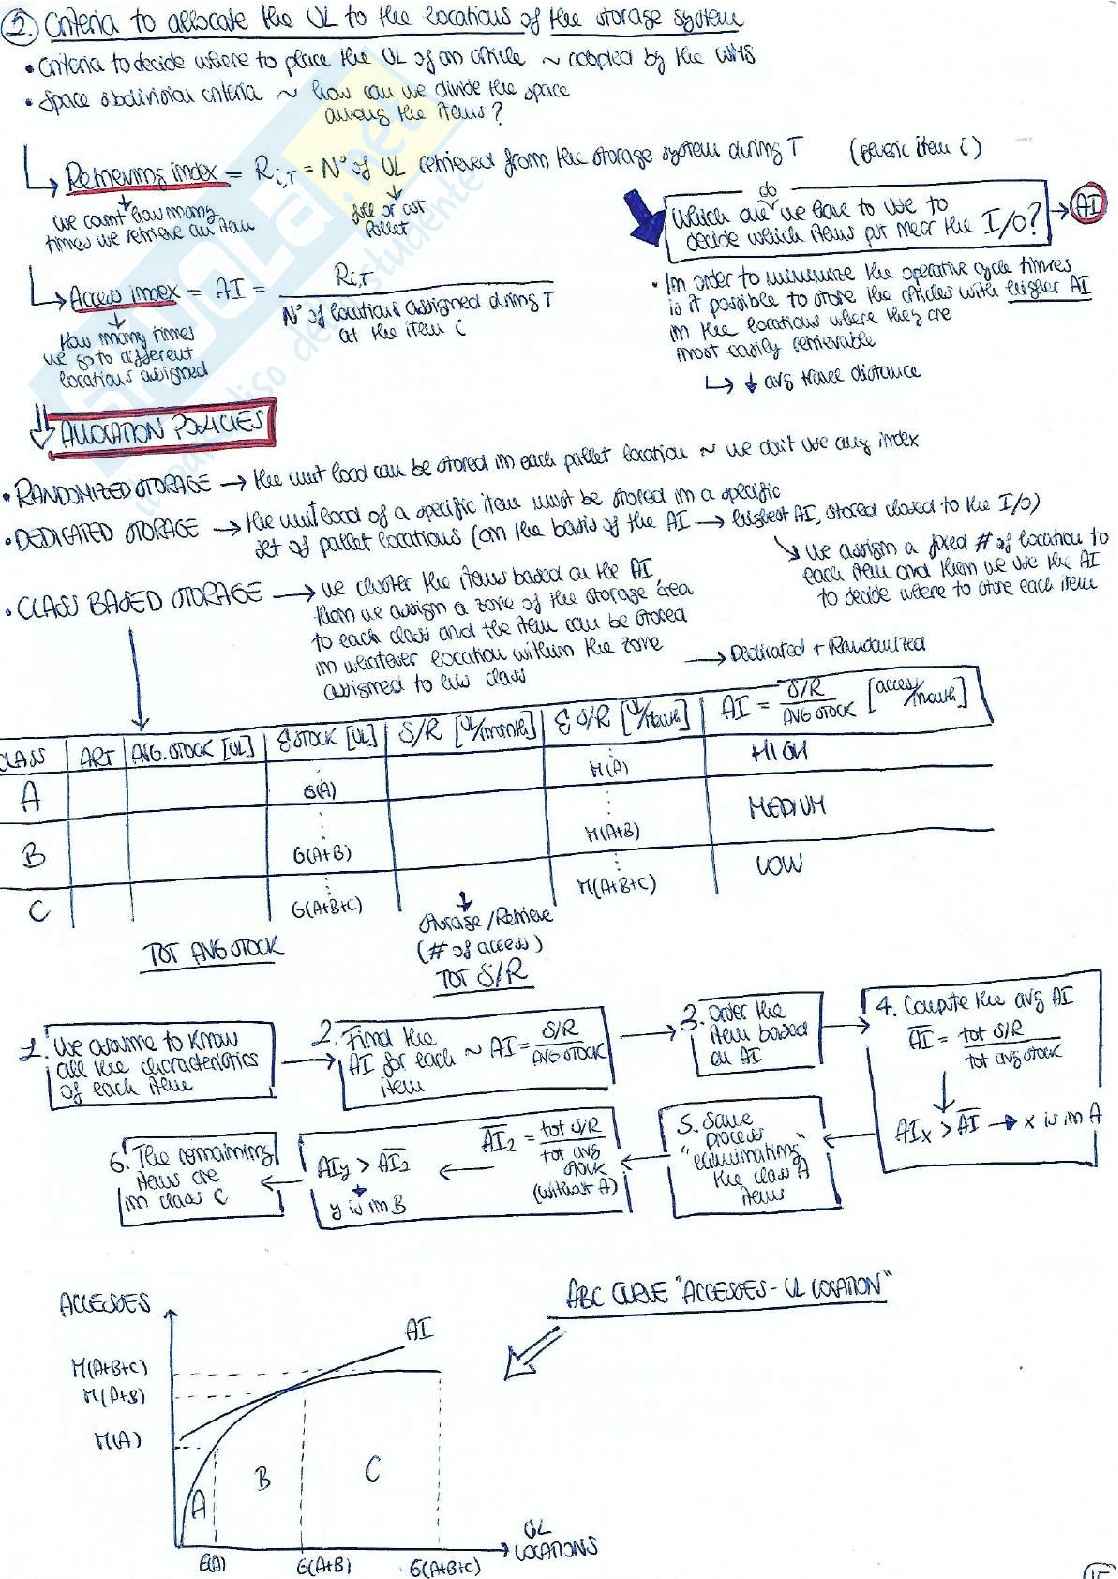 2. Criteria to allocate the UL to the locations of the storage system
• Criteria to decide where to place the UL of an article ~ adopted by the WMS
• Space subdivision criteria ~ how can we divide the space
among the items?
Retrieving index = Ri,T = N° of UL retrieved from the storage system during T (generic item i)
we count how many
times we retrieve an item
full or cut
pallet
Which are do we have to use to
decide which items put near the I/O? → AI
• In order to minimize the operative cycle times
is it possible to store the articles with higher AI
in the locations where they are
most easily retrievable
↳ ↓ avg travel distance
Access index = AI = Ri,T
N° of locations assigned during T
at the item i
How many times
we go to different
locations assigned
ALLOCATION POLICIES
• RANDOMIZED STORAGE → the unit load can be stored in each pallet location ~ we don't use any index
• DEDICATED STORAGE → the unit load of a specific item must be stored in a specific
set of pallet locations (on the basis of the AI → highest AI, stored closed to the I/O)
we assign a fixed # of location to
each item and then we use the AI
to decide where to store each item
• CLASS BASED STORAGE → we cluster the items based on the AI,
then we assign a zone of the storage area
to each class and the item can be stored
in whatever location within the zone
assigned to his class
→ Dedicated + Randomized
CLASS ART AVG. STOCK [UL] ΣSTOCK [UL] S/R [UL/month] Σ S/R [UL/month] AI = S/R / AVG STOCK [acces/month]
A G(A) M(A) HIGH
B G(A+B) M(A+B) MEDIUM
C G(A+B+C) M(A+B+C) LOW
TOT AVG STOCK
Storage/Retrieve
(# of access)
TOT S/R
1. We assume to know
all the characteristics
of each item
2. Find the
AI for each ~ AI = S/R / AVG STOCK
item
3. Order the
item based
on AI
4. Compute the avg AI
AI = tot S/R / tot avg stock
AIx > AI → x is in A
5. Same
process
"eliminating"
the class A
items
AI2 = tot S/R / tot avg stock
(without A)
AIy > AI2
y is in B
6. The remaining
items are
in class C
ABC CURVE "ACCESSES - UL LOCATION"
ACCESSES
AI
M(A+B+C)
M(A+B)
M(A)
A
B
C
UL
LOCATIONS
G(A) G(A+B) G(A+B+C)
15